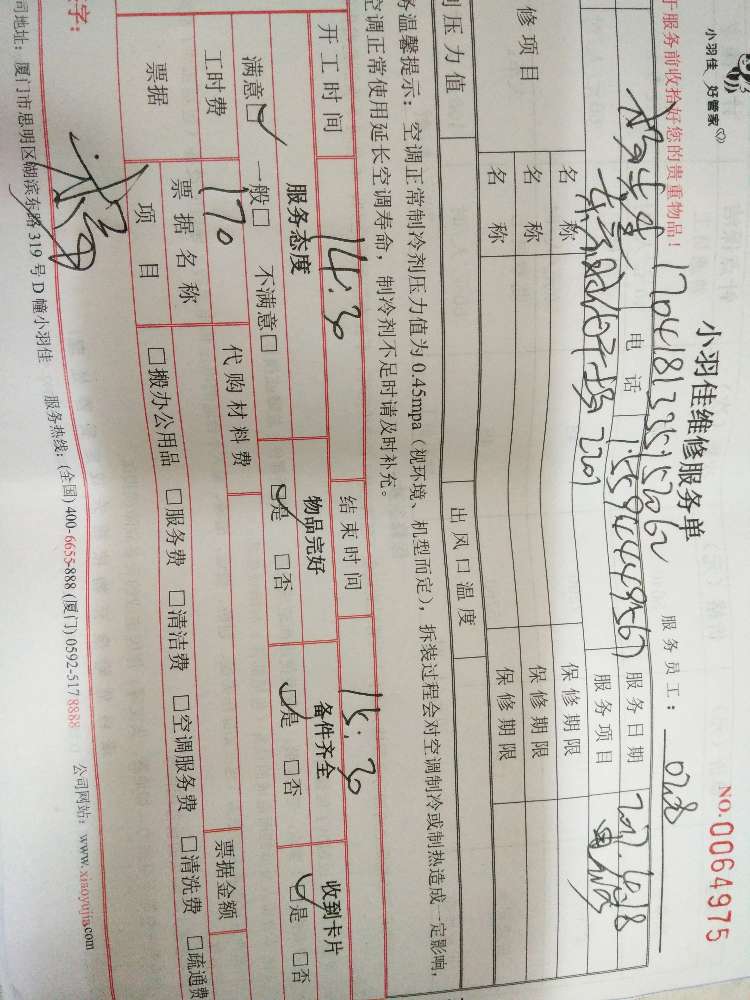 小羽佳 好管家
小羽佳维修服务单
NO.0064975
于服务前收拾好您的贵重物品！
服务员工：028
电话
服务日期
服务项目
修项目
名称 保修期限
名称 保修期限
名称 保修期限
压力值 出风口温度
务温馨提示：空调正常制冷剂压力值为0.45mpa（视环境、机型而定），拆装过程会对空调制冷或制热造成一定影响，
空调正常使用延长空调寿命，制冷剂不足时请及时补充。
开工时间 14:30 结束时间 15:30
服务态度 物品完好 备件齐全 收到卡片
满意☑ 一般□ 不满意□ ☑是 □否 ☑是 □否 ☑是 □否
工时费 170 代购材料费
票据 票据名称 票据金额
项目 □搬办公用品 □服务费 □清洁费 □空调服务费 □清洗费 □疏通费
字：
司地址：厦门市思明区湖滨东路319号D幢小羽佳 服务热线：(全国)400-6655-888 (厦门)0592-5178888 公司网站：www.xiaoyujia.com